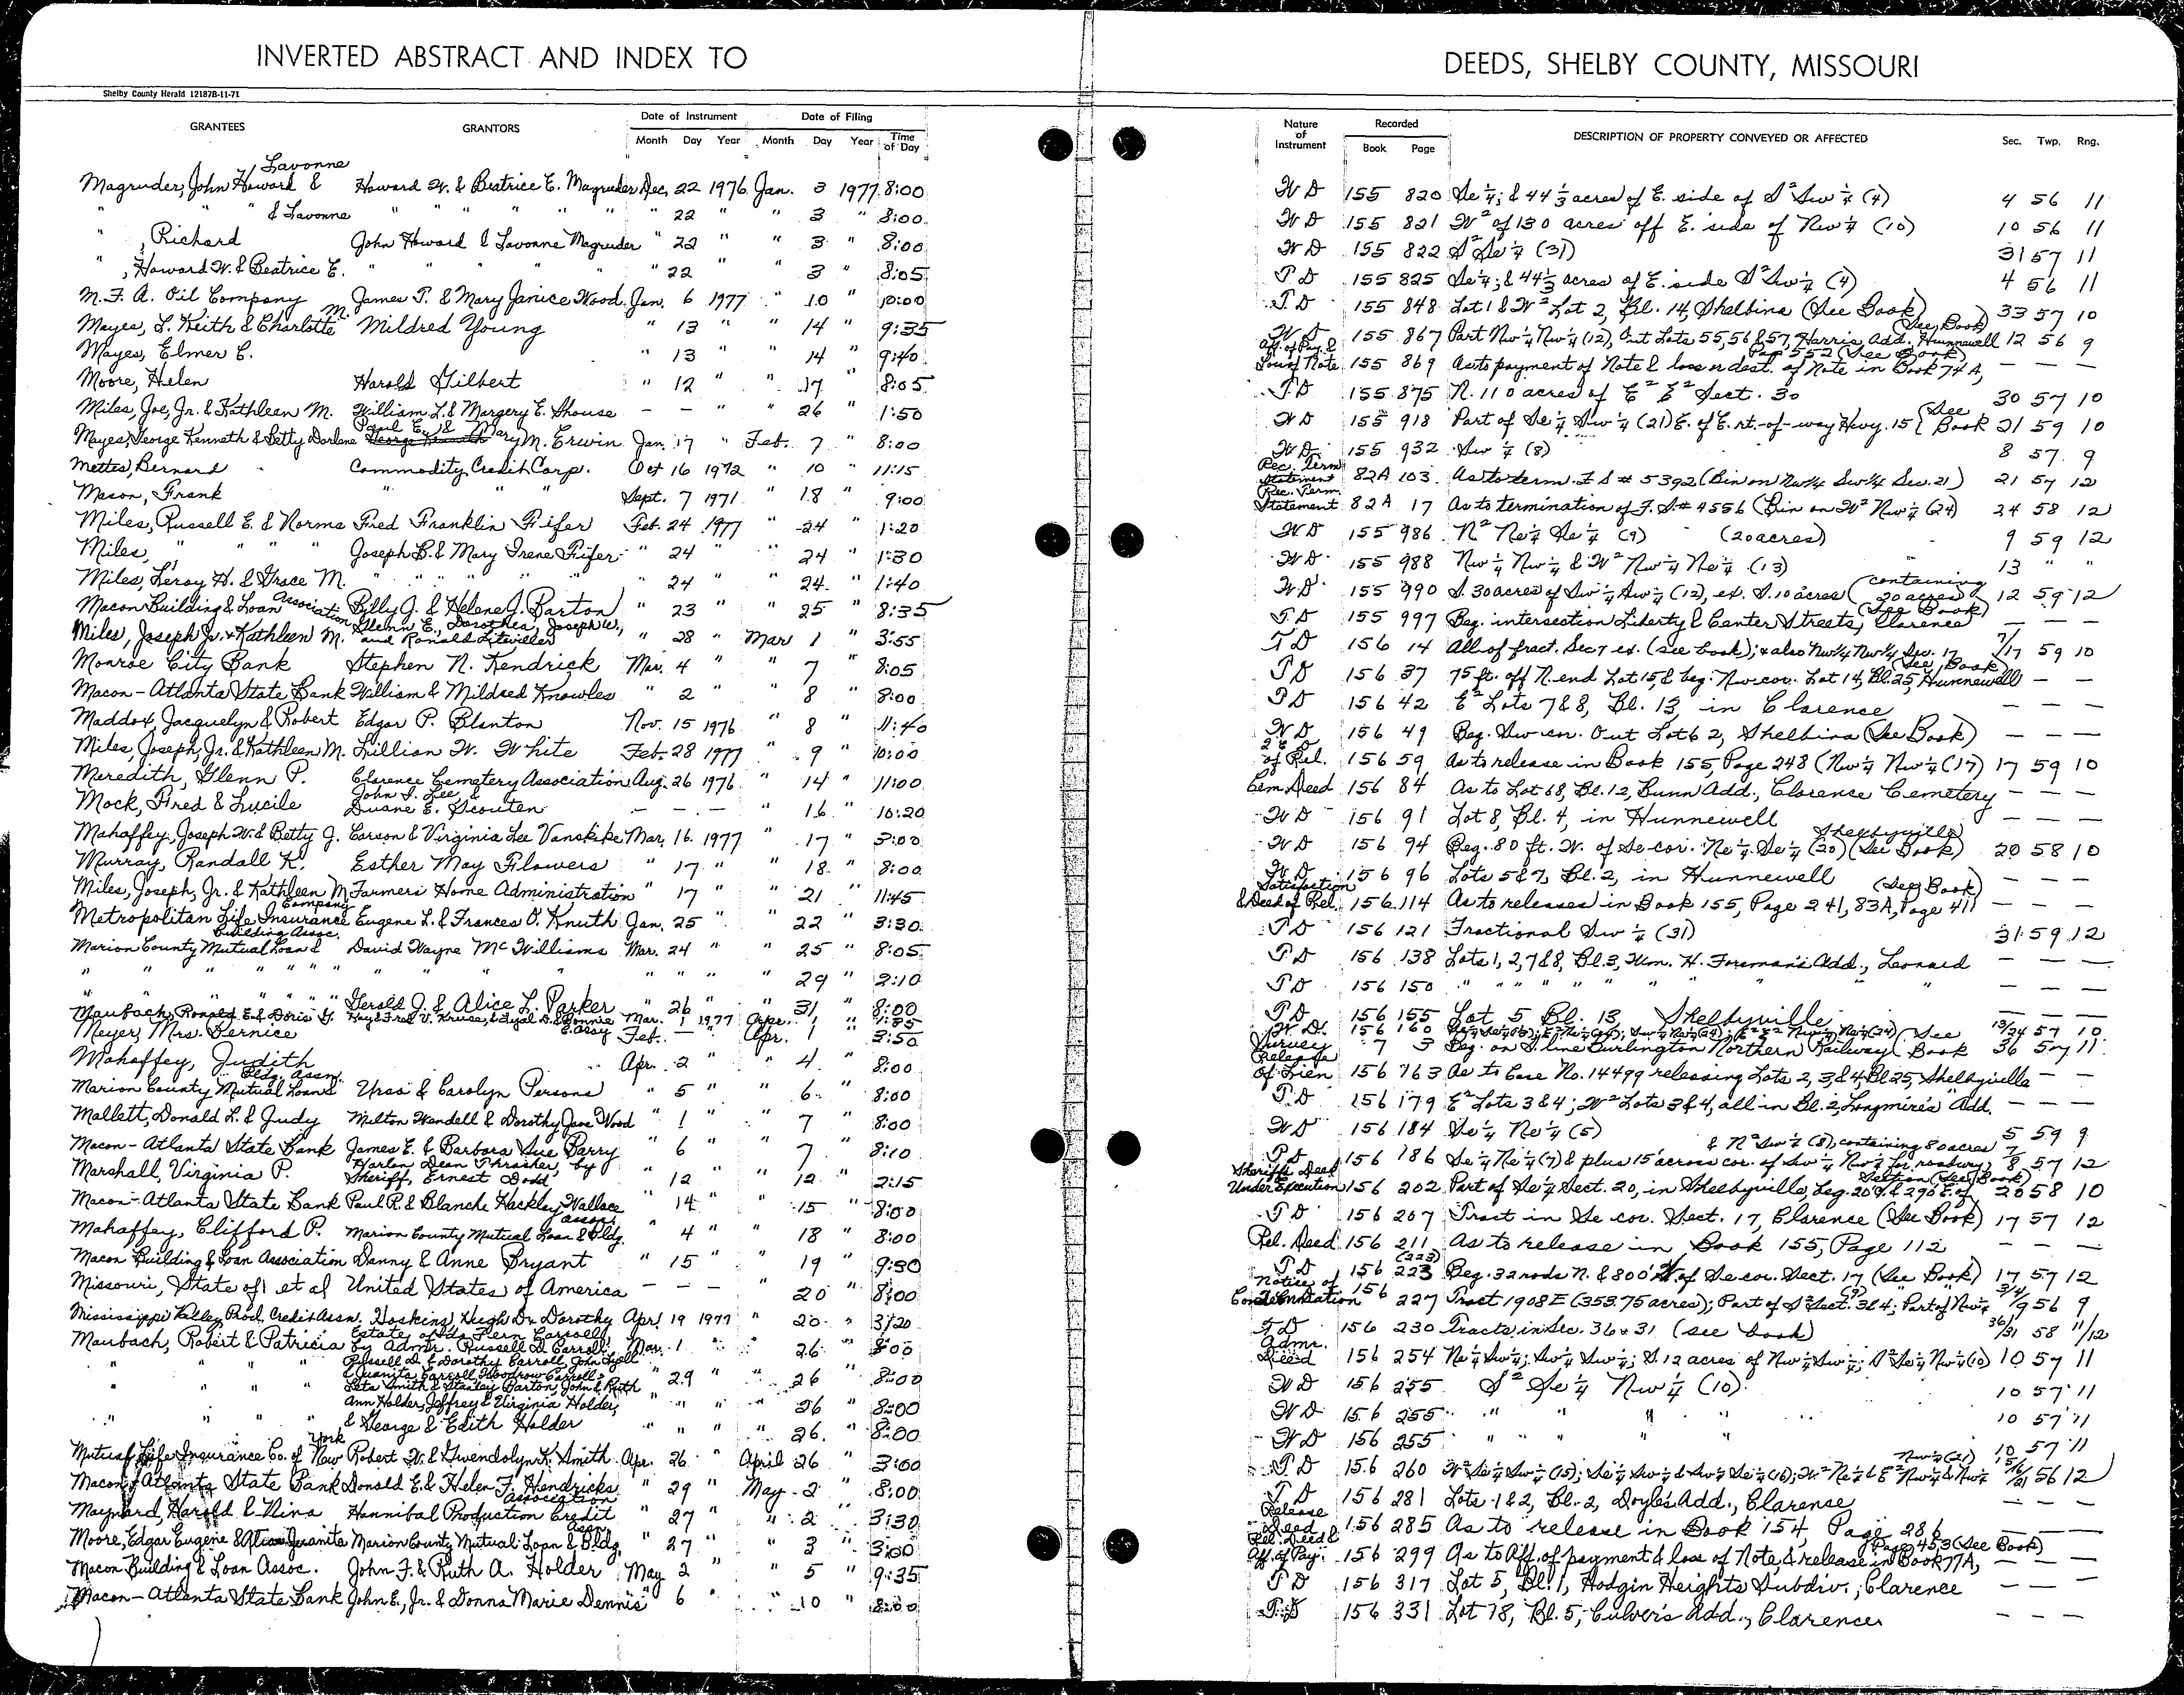 INVERTED ABSTRACT AND INDEX TO DEEDS, SHELBY COUNTY, MISSOURI
Shelby County Herald 12187B-11-71
GRANTEES GRANTORS Date of Instrument Month Day Year Date of Filing Month Day Year Time of Day Nature of Instrument Recorded Book Page DESCRIPTION OF PROPERTY CONVEYED OR AFFECTED Sec. Twp. Rng.
Magruder, John Howard & Lavonne Howard W. & Beatrice E. Magruder Dec. 22 1976 Jan. 3 1977 8:00 W D 155 820 Se ¼; & 44 ⅓ acres of E. side of S² Sw ¼ (4) 4 56 11
" " " & Lavonne " " " " " " 22 " " 3 " 8:00 W D 155 821 W² of 130 acres off E. side of Nw ¼ (10) 10 56 11
" , Richard John Howard & Lavonne Magruder " 22 " " 3 " 8:00 W D 155 822 S² Se ¼ (31) 31 57 11
" , Howard W. & Beatrice E. " " " " " 22 " " 3 " 8:05 T D 155 825 Se ¼; & 44 ⅓ acres of E. side S² Sw ¼ (4) 4 56 11
M. F. A. Oil Company James T. & Mary Janice Wood Jan. 6 1977 " 10 " 10:00 T. D 155 848 Lot 1 & W² Lot 2, Bl. 14, Shelbina (See Book) 33 57 10
Mayes, L. Keith & Charlotte M. Mildred Young " 13 " " 14 " 9:35 W D 155 867 Part Nw ¼ Nw ¼ (12), Out Lots 55, 56 & 57, Harris Add. Hunnewell (See Book) 12 56 9
Mayes, Elmer C. " 13 " 14 " 9:40 Aff. of Pay. & Loss of Note 155 869 As to payment of Note & loss or dest. of Note in Book 74 A, Page 552 (See Book) — — —
Moore, Helen Harold Gilbert " 12 " " 17 " 8:05 T D 155 875 N. 110 acres of E² E² Sect. 30 30 57 10
Miles, Joe, Jr. & Kathleen M. William L. & Margery E. Shouse — — " " 26 " 1:50 W D 155 918 Part of Se ¼ Sw ¼ (21) E. of E. rt.-of-way Hwy. 15 (See Book 21 59 10
Mayes, George Kenneth & Betty Darlene Paul E. & Mary M. Erwin Jan. 17 " Feb. 7 " 8:00 W D. 155 932 Sw ¼ (8) 8 57 9
Mettes, Bernard Commodity Credit Corp. Oct 16 1972 " 10 " 11:15 Rec. Term Statement 82A 103 As to term. F S # 5392 (Bin on Nw¼ Sw¼ Sec. 21) 21 57 12
Mason, Frank " " " Sept. 7 1971 " 18 " 9:00 Rec. Term. Statement 82 A 17 As to termination of F. S # 4556 (Bin on W² Nw ¼ (24) 24 58 12
Miles, Russell E. & Norma Fred Franklin Fifer Feb. 24 1977 " 24 " 1:20 W D 155 986 N² Ne ¼ Se ¼ (9) (20 acres) 9 59 12
Miles, " " " " Joseph B. & Mary Irene Fifer " 24 " 24 " 1:30 W D 155 988 Nw ¼ Nw ¼ & W² Nw ¼ Ne ¼ (13) 13 " "
Miles, Leroy H. & Grace M. " " " " " 24 " 24 " 1:40 W D 155 990 S. 30 acres of Sw ¼ Sw ¼ (12), ex. S. 10 acres (containing 20 acres) 12 59 12
Macon Building & Loan Association Billy G. & Helene J. Barton " 23 " " 25 " 8:35 T D 155 997 Beg. intersection Liberty & Center Streets, Clarence (See Book) — — —
Miles, Joseph Jr. & Kathleen M. Glenn E., Dorothea, Joseph W., and Ronald Litwiller " 28 " Mar 1 " 3:55 T D 156 14 All of fract. Sec 7 ex. (see book); & also Nw¼ Nw¼ Sec. 17 7/17 59 10
Monroe City Bank Stephen N. Kendrick Mar. 4 " " 7 " 8:05 T D 156 37 75 ft. off N. end Lot 15, & beg. Nw cor. Lot 14, Bl. 25, Hunnewell (See Book) — —
Macon-Atlanta State Bank William & Mildred Knowles " 2 " " 8 " 8:00 T D 156 42 E² Lots 7 & 8, Bl. 13, in Clarence — — —
Maddox, Jacquelyn & Robert Edgar P. Blanton Nov. 15 1976 " 8 " 11:40 W D 156 49 Beg. Sw cor. Out Lot 62, Shelbina (See Book) — — —
Miles, Joseph, Jr. & Kathleen M. Lillian W. White Feb. 28 1977 " 9 " 10:00 of Rel. 156 59 As to release in Book 155, Page 248 (Nw ¼ Nw ¼ (17) 17 59 10
Meredith, Glenn P. Clarence Cemetery Association Aug. 26 1976 " 14 " 11:00 Cem. Deed 156 84 As to Lot 68, Bl. 12, Bunn Add., Clarence Cemetery — — —
Mock, Fred & Lucile John I. Lee, & Duane E. Scouten — — — " 16 " 10:20 W D 156 91 Lot 8, Bl. 4, in Hunnewell — — —
Mahaffey, Joseph W. & Betty J. Carson & Virginia Lee Vanskike Mar. 16 1977 " 17 " 3:00 W D 156 94 Beg. 80 ft. W. of Se cor. Ne ¼ Se ¼ (20) (See Book) Shelbyville 20 58 10
Murray, Randall K. Esther May Flowers " 17 " " 18 " 8:00 W D 156 96 Lots 5 & 7, Bl. 2, in Hunnewell — — —
Miles, Joseph, Jr. & Kathleen M. Farmers Home Administration " 17 " 21 " 11:45 Satisfaction & Deed of Rel. 156 114 As to releases in Book 155, Page 241, 83A, Page 411 (See Book) — — —
Metropolitan Life Insurance Company Eugene L. & Frances O. Knuth Jan. 25 " 22 " 3:30 T D 156 121 Fractional Sw ¼ (31) 31 59 12
Marion County Mutual Loan & Building Assoc. David Wayne McWilliams Mar. 24 " " 25 " 8:05 T D 156 138 Lots 1, 2, 7 & 8, Bl. 3, Wm. H. Foreman's Add., Leonard — — —
" " " " " " " " " " " " " 29 " 2:10 T D 156 150 " " " " " " " " — — —
" " " " " " Gerald J. & Alice L. Parker " 26 " " 31 " 8:00 T D 156 155 Lot 5 Bl. 13 Shelbyville — — —
Maubach, Ronald E. & Doris Mar. 1 1977 Apr. 1 " W. D. 156 160 (See 13/24 57 10
Meyer, Mrs. Bernice Feb. — " Apr. 1 " 3:50 Survey 7 3 Beg. on S. line Burlington Northern Railway (See Book 36 57 11
Mahaffey, Judith Apr. 2 " " 4 " 8:00 Release of Lien 156 163 As to Case No. 14499 releasing Lots 2, 3, & 4, Bl 25, Shelbyville — —
Marion County Mutual Loan & Bldg. Assn. Ursa & Carolyn Persons " 5 " " 6 " 8:00 T. D 156 179 E² Lots 3 & 4; W² Lots 3 & 4, all in Bl. 2, Longmire's Add. — — —
Mallett, Donald L. & Judy Milton Wendell & Dorothy Jane Wood " 1 " 7 " 8:00 W D 156 184 Se ¼ Ne ¼ (5) 5 59 9
Macon-Atlanta State Bank James E. & Barbara Sue Barry " 6 " 7 " 8:10 T D 156 186 Se ¼ Ne ¼ (7) & plus 15' across cor. of Sw ¼ Nw ¼ for roadway, & N² Sw ¼ (8), containing 80 acres 7/8 57 12
Marshall, Virginia P. Harlon Dean Thrasher, by Sheriff, Ernest Dodd " 12 " 12 " 2:15 Sheriff's Deed Under Execution 156 202 Part of Se ¼ Sect. 20, in Shelbyville, beg. 20' S. & 290' E. of Section (See Book) 20 58 10
Macon-Atlanta State Bank Paul R. & Blanche Hackley Wallace " 14 " 15 " 8:00 T D 156 207 Tract in Se cor. Sect. 17, Clarence (See Book) 17 57 12
Mahaffey, Clifford P. Marion County Mutual Loan & Bldg. Assoc. " 4 " " 18 " 8:00 Rel. Deed 156 211 As to release in Book 155, Page 112 — — —
Macon Building & Loan Association Danny & Anne Bryant " 15 " 19 " 9:30 T D 156 223 (223) Beg. 32 rods N. & 800' W. of Se cor. Sect. 17 (See Book) 17 57 12
Missouri, State of, et al United States of America — — — " 20 " 8:00 Notice of Condemnation 156 227 Tract 1908 E (353.75 acres); Part of S² Sect. 3 & 4; Part of Nw ¼ (9) 3/4/9 56 9
Mississippi Valley Prod. Credit Assn. Hoskins, Hugh D. & Dorothy Apr. 19 1977 " 20 " 3:20 T D 156 230 Tracts in Sec. 36 & 31 (see book) 36/31 58 11/12
Maubach, Robert & Patricia Estate of Ida Fern Carroll, by Admr. Russell D. Carroll Mar. 1 " 26 " 8:00 Admr. Deed 156 254 Ne ¼ Sw ¼; Sw ¼ Sw ¼; S. 12 acres of Nw ¼ Sw ¼; S² Se ¼ Nw ¼ (10) 10 57 11
" " " Russell D. & Dorothy Carroll, John Lyell & Juanita Carroll, Woodrow Carroll, Leta Smith & Stanley Barton, John & Ruth " 29 " " 26 " 8:00 W D 156 255 S² Se ¼ Nw ¼ (10) 10 57 11
Ann Holder, Jeffrey & Virginia Holder, " " " 26 " 8:00 W D 156 255 " " " " 10 57 11
" " " & George & Edith Holder " " " " 26 " 8:00 W D 156 255 " " " " " 10 57 11
Mutual Life Insurance Co. of New York Robert W. & Gwendolyn K. Smith Apr. 26 " April 26 " 3:00 T D 156 260 W² Se ¼ Sw ¼ (15); Se ¼ Sw ¼ & Sw ¼ Se ¼ (16); W² Ne ¼ & E² Nw ¼ & Nw ¼ Nw ¼ (21) 15/16/21 56 12
Macon-Atlanta State Bank Donald E. & Helen F. Hendricks " 29 " May 2 " 8:00 T D 156 281 Lots 1 & 2, Bl. 2, Doyle's Add., Clarence — — —
Maynard, Harold & Nina Hannibal Production Credit Association " 27 " " 2 " 3:30 Release Deed 156 285 As to release in Book 154, Page 286 — — —
Moore, Edgar Eugene & Juanita Marion County Mutual Loan & Bldg. Assn. " 27 " " 3 " 3:00 Rel. Deed & Aff. of Pay. 156 299 As to Aff. of payment & loss of Note, & release in Book 77A, Page 453 (See Book) — — —
Macon Building & Loan Assoc. John F. & Ruth A. Holder May 2 " " 5 " 9:35 T D 156 317 Lot 5, Bl. 1, Hodgin Heights Subdiv., Clarence — — —
Macon-Atlanta State Bank John E., Jr. & Donna Marie Dennis " 6 " " 10 " 8:00 T. D 156 331 Lot 18, Bl. 5, Culver's Add., Clarence — — —